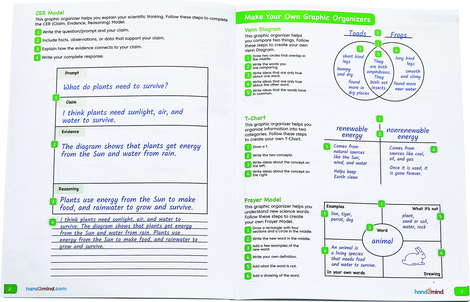 CER Model
This graphic organizer helps you explain your scientific thinking. Follow these steps to complete
the CER (Claim, Evidence, Reasoning) Model.
1 Write the question/prompt and your claim.
2 Include facts, observations, or data that support your claim.
3 Explain how the evidence connects to your claim.
4 Write your complete response.
Prompt
What do plants need to survive?
Claim
I think plants need sunlight, air, and
water to survive.
Evidence
The diagram shows that plants get energy
from the Sun and water from rain.
Reasoning
Plants use energy from the Sun to make
food, and rainwater to grow and survive.
I think plants need sunlight, air, and water to
survive. The diagram shows that plants get energy
from the Sun and water from rain. Plants use
energy from the Sun to make food, and rainwater to
grow and survive.
hand2mind.com
Make Your Own Graphic Organizers
Venn Diagram
This graphic organizer helps
you compare two things. Follow
these steps to create your own
Venn Diagram.
1 Draw two circles that overlap in
the middle.
2 Write the words you
are comparing.
3 Write ideas that are only true
about one word.
4 Write ideas that are only true
about the other word.
5 Write ideas that the words have
in common.
Toads
Frogs
short hind
legs
bumpy
and dry
found
more in
dry places
They
are both
amphibians.
They
both eat
insects.
long hind
legs
smooth
and slimy
found more
near water
T-Chart
This graphic organizer helps you
organize information into two
categories. Follow these steps
to create your own T-Chart.
1 Draw a T.
2 Write the two concepts.
3 Write ideas about the concept on
the left.
4 Write ideas about the concept on
the right.
renewable
energy
nonrenewable
energy
Comes from
natural sources
like the Sun,
wind, and water
Helps keep
Earth clean
Comes from
sources like coal,
oil, and gas
Once it is used, it
is gone forever.
Frayer Model
This graphic organizer helps you
understand new science words.
Follow these steps to create
your own Frayer Model.
1 Draw a rectangle with four
sections and a circle in the middle.
2 Write the new word in the middle.
3 Add a few examples of the
new word.
4 Write your own definition.
5 Add what the word is not.
6 Add a drawing of the word.
Examples
What it's not
tiger,
parrot, dog
plant,
sand or salt,
water, rock
Word
animal
An animal is
a living species
that needs food
and water to survive.
In your own words
Drawing
hand2mind